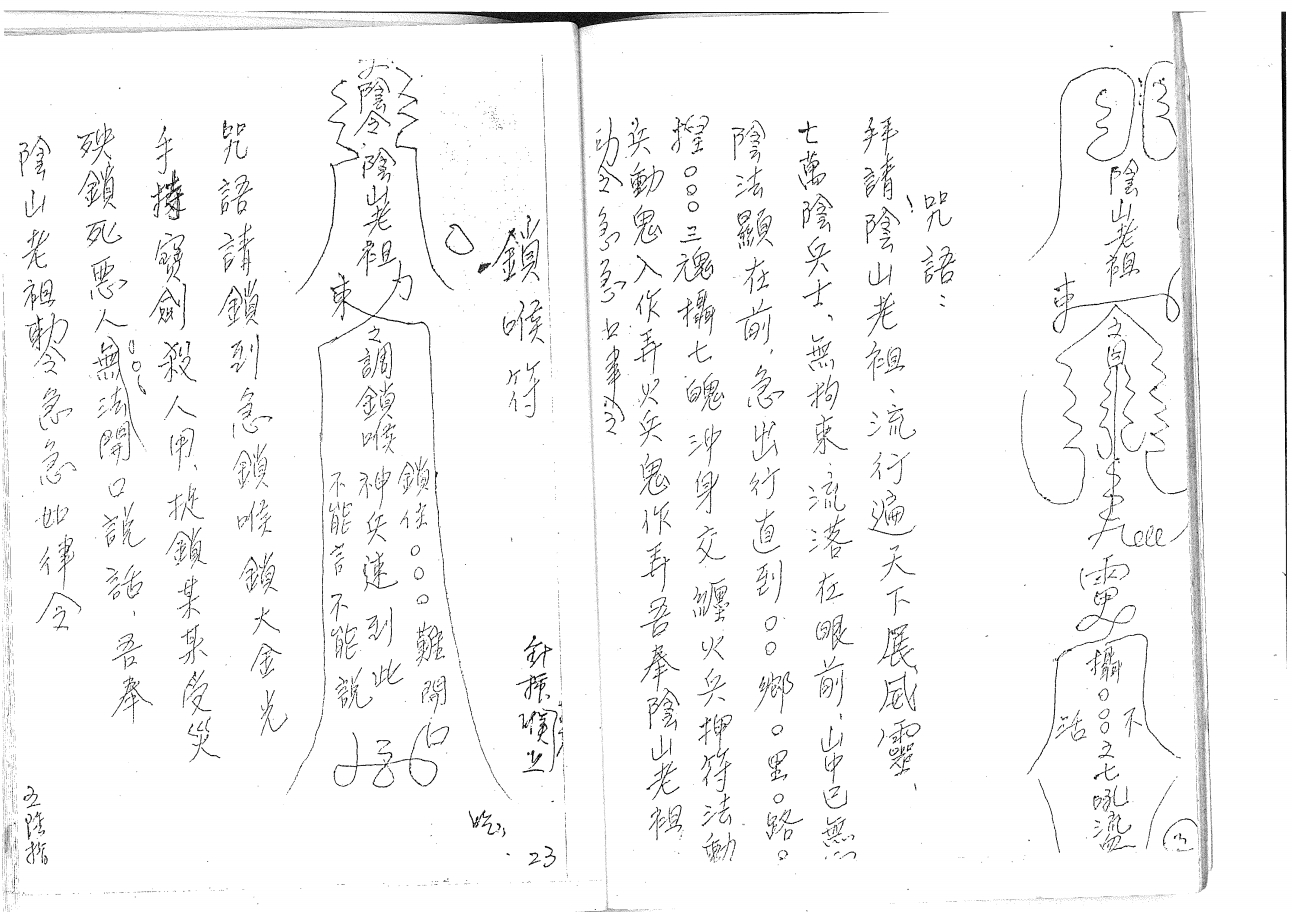 陰山老祖
東
雷
攝○○○之七
不
活
咒語：
拜請陰山老祖、流行遍天下展威靈、
七萬陰兵士、無拘束流落在眼前、山中已無
陰法顯在前、急出行直到○○鄉○里○路○
○○○三魂攝七魄沖身交纏火兵押符法動
兵動鬼入作弄火兵鬼作弄吾奉陰山老祖
急急如律令
23
鎖喉符
陰令陰山老祖
東
力
之調鎖喉神兵速到此
鎖住○○○難開口
不能言不能說
咒語請鎖到急鎖喉鎖大金光
手捧寶劍殺人用、捉鎖某某受災
殃鎖死惡人○○○無法開口說話、吾奉
陰山老祖勅令急急如律令
五陰指